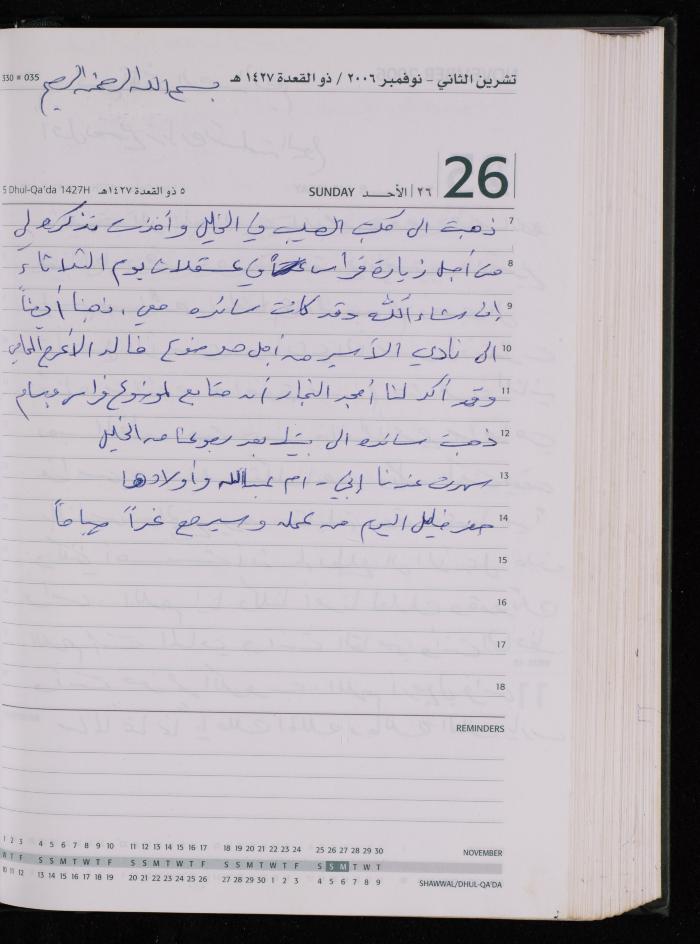 330 = 035
تشرين الثاني - نوفمبر ٢٠٠٦ / ذو القعدة ١٤٢٧ هـ
بسم الله الرحمن الرحيم
5 Dhul-Qa'da 1427H ٥ ذو القعدة ١٤٢٧هـ SUNDAY ٢٦ | الأحـــد 26
7 ذهبت الى مكتب الصليب في الخليل وأخذت تذكره لي
8 من أجل زيارة فراس في عسقلان يوم الثلاثاء
9 إن شاء الله وقد كانت سائده معي، ذهبنا أيضاً
10 الى نادي الأسير من أجل موضوع خالد الأعرج المحامي
11 وقد أكد لنا أمجد النجار أنه متابع لموضوع فراس وبسام
12 ذهبت سائده الى بيتها بعد رجوعنا من الخليل
13 سهرت عندنا إبنتي - ام عبدالله وأولادها
14 حضر خليل اليوم من عمله وسيرجع غداً صباحاً
15
16
17
18
REMINDERS
1 2 3 4 5 6 7 8 9 10 11 12 13 14 15 16 17 18 19 20 21 22 23 24 25 26 27 28 29 30 NOVEMBER
W T F S S M T W T F S S M T W T F S S M T W T F S S M T W T
10 11 12 13 14 15 16 17 18 19 20 21 22 23 24 25 26 27 28 29 30 1 2 3 4 5 6 7 8 9 SHAWWAL/DHUL-QA'DA